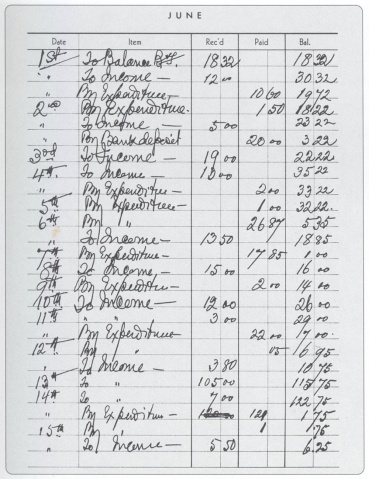 JUNE
Date Item Rec'd Paid Bal.
1st To Balance B/F. 18 32 18 32
" To Income — 12 00 30 32
" By Expenditure — 10 60 19 72
2nd By Expenditure. 1 50 18 22
" To Income — 5 00 23 22
" By Bank deposit 20 00 3 22
3rd To Income — 19 00 22 22
4th To Income — 13 00 35 22
" By Expenditure — 2 00 33 22
5th By Expenditure — 1 00 32 22
6th By " 26 87 5 35
" To Income — 13 50 18 85
7th By Expenditure — 17 85 1 00
8th To Income — 15 00 16 00
9th By Expenditure — 2 00 14 00
10th To Income — 12 00 26 00
11th " " 3 00 29 00
" By Expenditure 22 00 7 00
12th By " 05 6 95
" To Income — 3 80 10 75
13th To " 105 00 115 75
14th To " 7 00 122 75
" By Expenditure — 121 1 75
15th By " 1 75
" To Income — 5 50 6 25